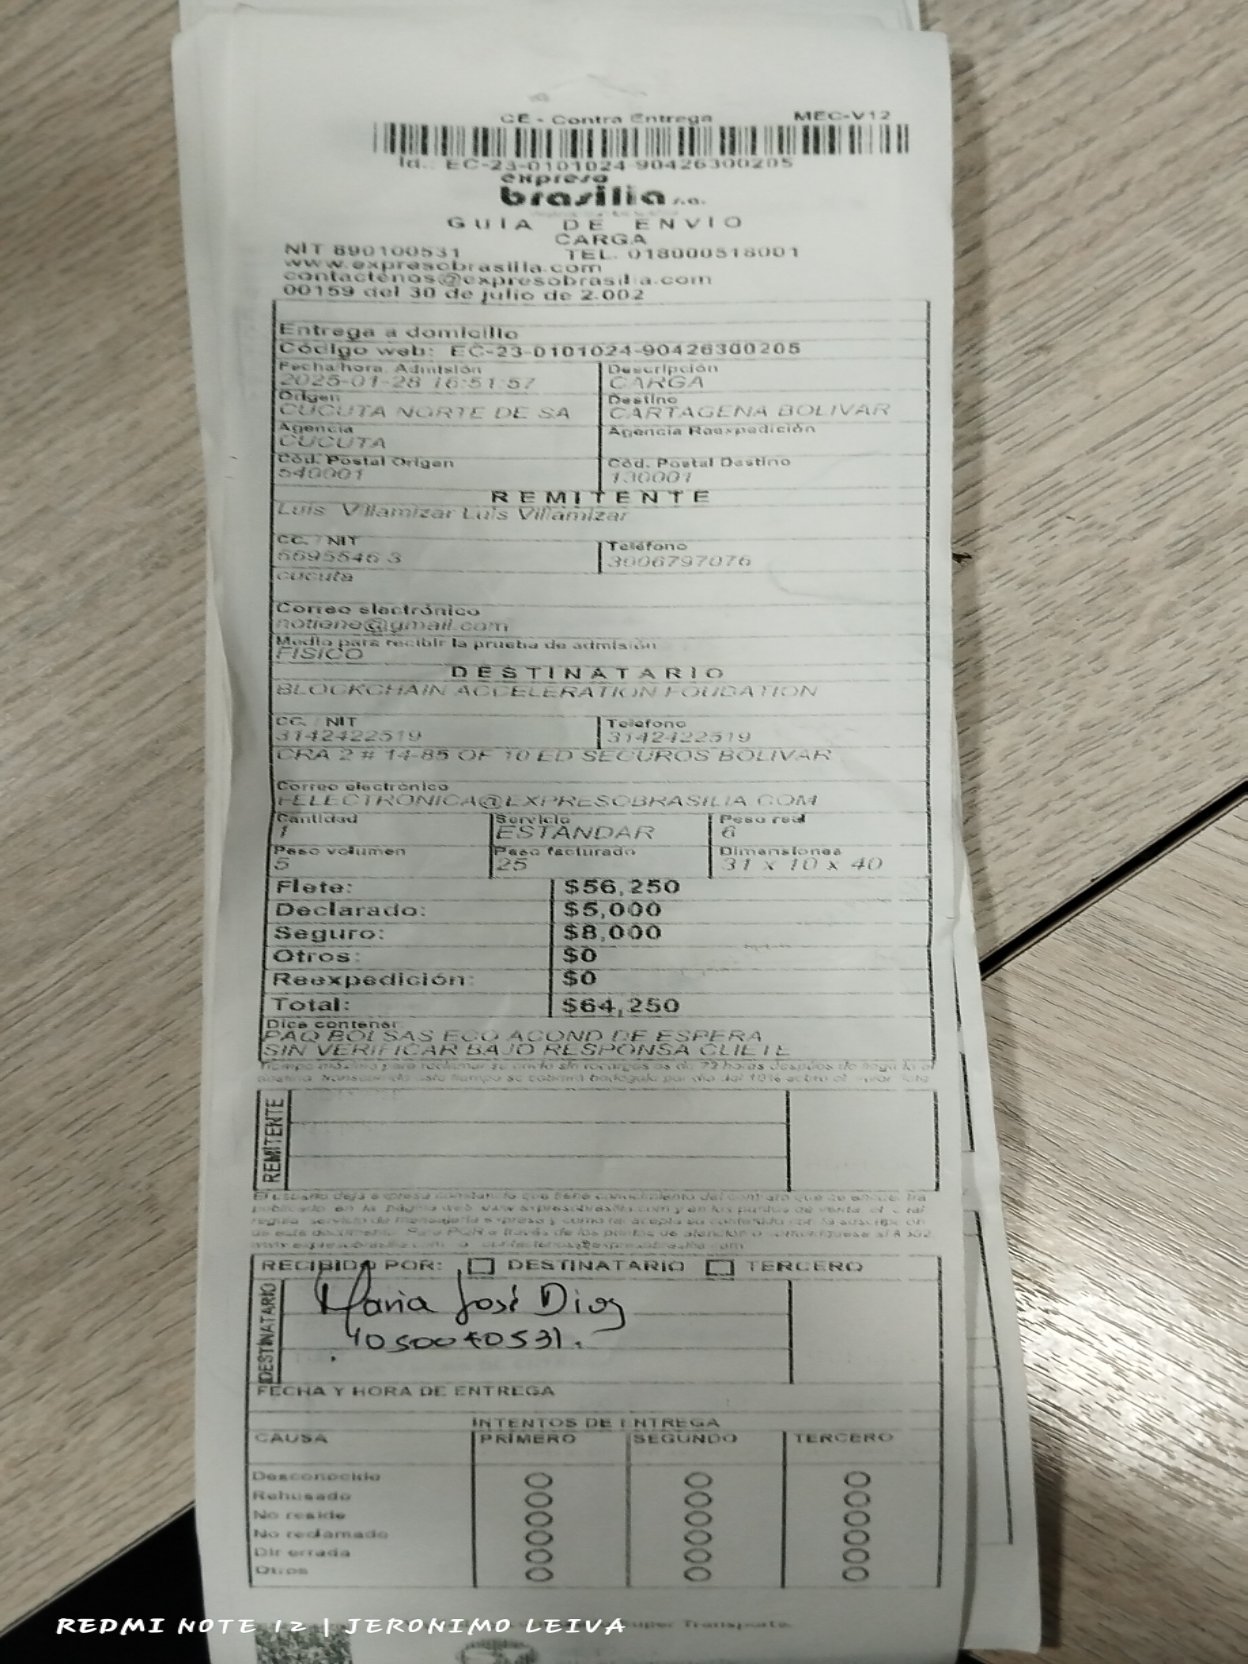 CE - Contra Entrega MEC-V12
Id.. EC-23-0101024-90426300205
expreso
brasilia s.a.
GUIA DE ENVIO
CARGA
NIT 890100531 TEL. 018000518001
www.expresobrasilia.com
contactenos@expresobrasilia.com
00159 del 30 de julio de 2.002
Entrega a domicilio
Código web: EC-23-0101024-90426300205
Fecha/hora. Admisión Descripción
2025-01-28 16:51:57 CARGA
Origen Destino
CUCUTA NORTE DE SA CARTAGENA BOLIVAR
Agencia Agencia Reexpedición
CUCUTA
Cód. Postal Origen Cód. Postal Destino
540001 130001
REMITENTE
Luis Villamizar Luis Villamizar
CC. / NIT Teléfono
5695546 3 3006797076
cucuta
Correo electrónico
notiene@gmail.com
Medio para recibir la prueba de admisión
FISICO
DESTINATARIO
BLOCKCHAIN ACCELERATION FOUDATION
CC. / NIT Teléfono
3142422519 3142422519
CRA 2 # 14-85 OF 10 ED SEGUROS BOLIVAR
Correo electrónico
FELECTRONICA@EXPRESOBRASILIA.COM
Cantidad Servicio Peso real
1 ESTANDAR 6
Peso volumen Peso facturado Dimensiones
5 25 31 x 10 x 40
Flete: $56,250
Declarado: $5,000
Seguro: $8,000
Otros: $0
Reexpedición: $0
Total: $64,250
Dice contener
PAQ BOLSAS ECO ACOND DE ESPERA
SIN VERIFICAR BAJO RESPONSA CLIETE
REMITENTE
RECIBIDO POR: DESTINATARIO TERCERO
DESTINATARIO
Maria José Dioz
FECHA Y HORA DE ENTREGA
INTENTOS DE ENTREGA
CAUSA PRIMERO SEGUNDO TERCERO
Desconocido
Rehusado
No reside
No reclamado
Dir errada
Otros
REDMI NOTE 12 | JERONIMO LEIVA